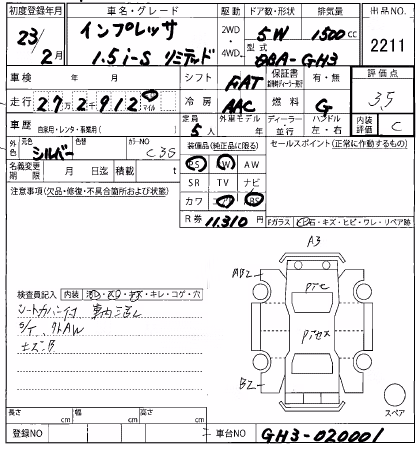 初度登録年月 車名・グレード 駆動 ドア数・形状 排気量 出品NO.
23年 2月 インプレッサ 1.5i-S リミテッド 2WD 4WD 5W 1500cc 2211
型式 DBA-GH3
車検 年 月 シフト FAT 保証書 有・無 評価点
走行 27万2千912 マイル 冷房 AAC 燃料 G 3.5
車歴 自家用・レンタ・事業用( ) 定員 5人 外車モデル 年 ディーラー・並行 ハンドル 左・右 内装評価 C
外色 元色 シルバー 色替 カラーNO C3G
装備品(純正品に限る) セールスポイント(正常に作動するもの)
名義変更期限 月 日迄 積載 t
PS PW AW
SR TV ナビ
カワ エアB ABS
注意事項(欠品・修復・不具合箇所および状態)
R券 11,310 円
Fガラス 石・キズ・ヒビ・ワレ・リペア跡
A3
AB2
Pセ
Pセセス
B2
検査員記入 内装 キレ・コゲ・穴
シートカバー付
S/T、外AW
キズ・B
スペア
長さ cm 幅 cm 高さ cm
登録NO 車台NO GH3-020001